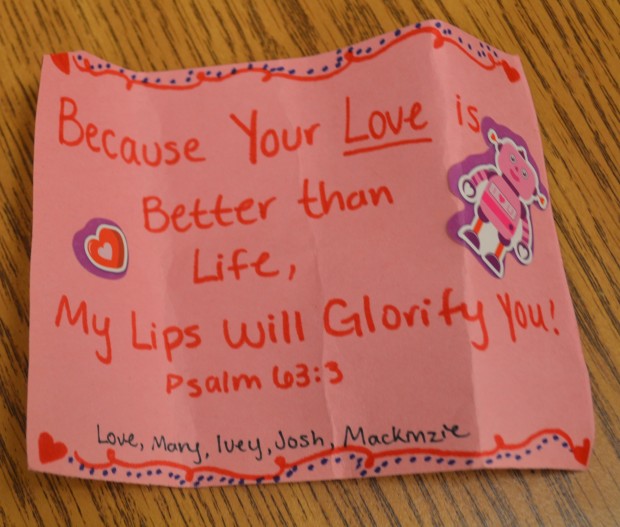 Because Your Love is
Better than
Life,
My Lips Will Glorify You!
Psalm 63:3
Love, Mary, Ivey, Josh, Mackmzie